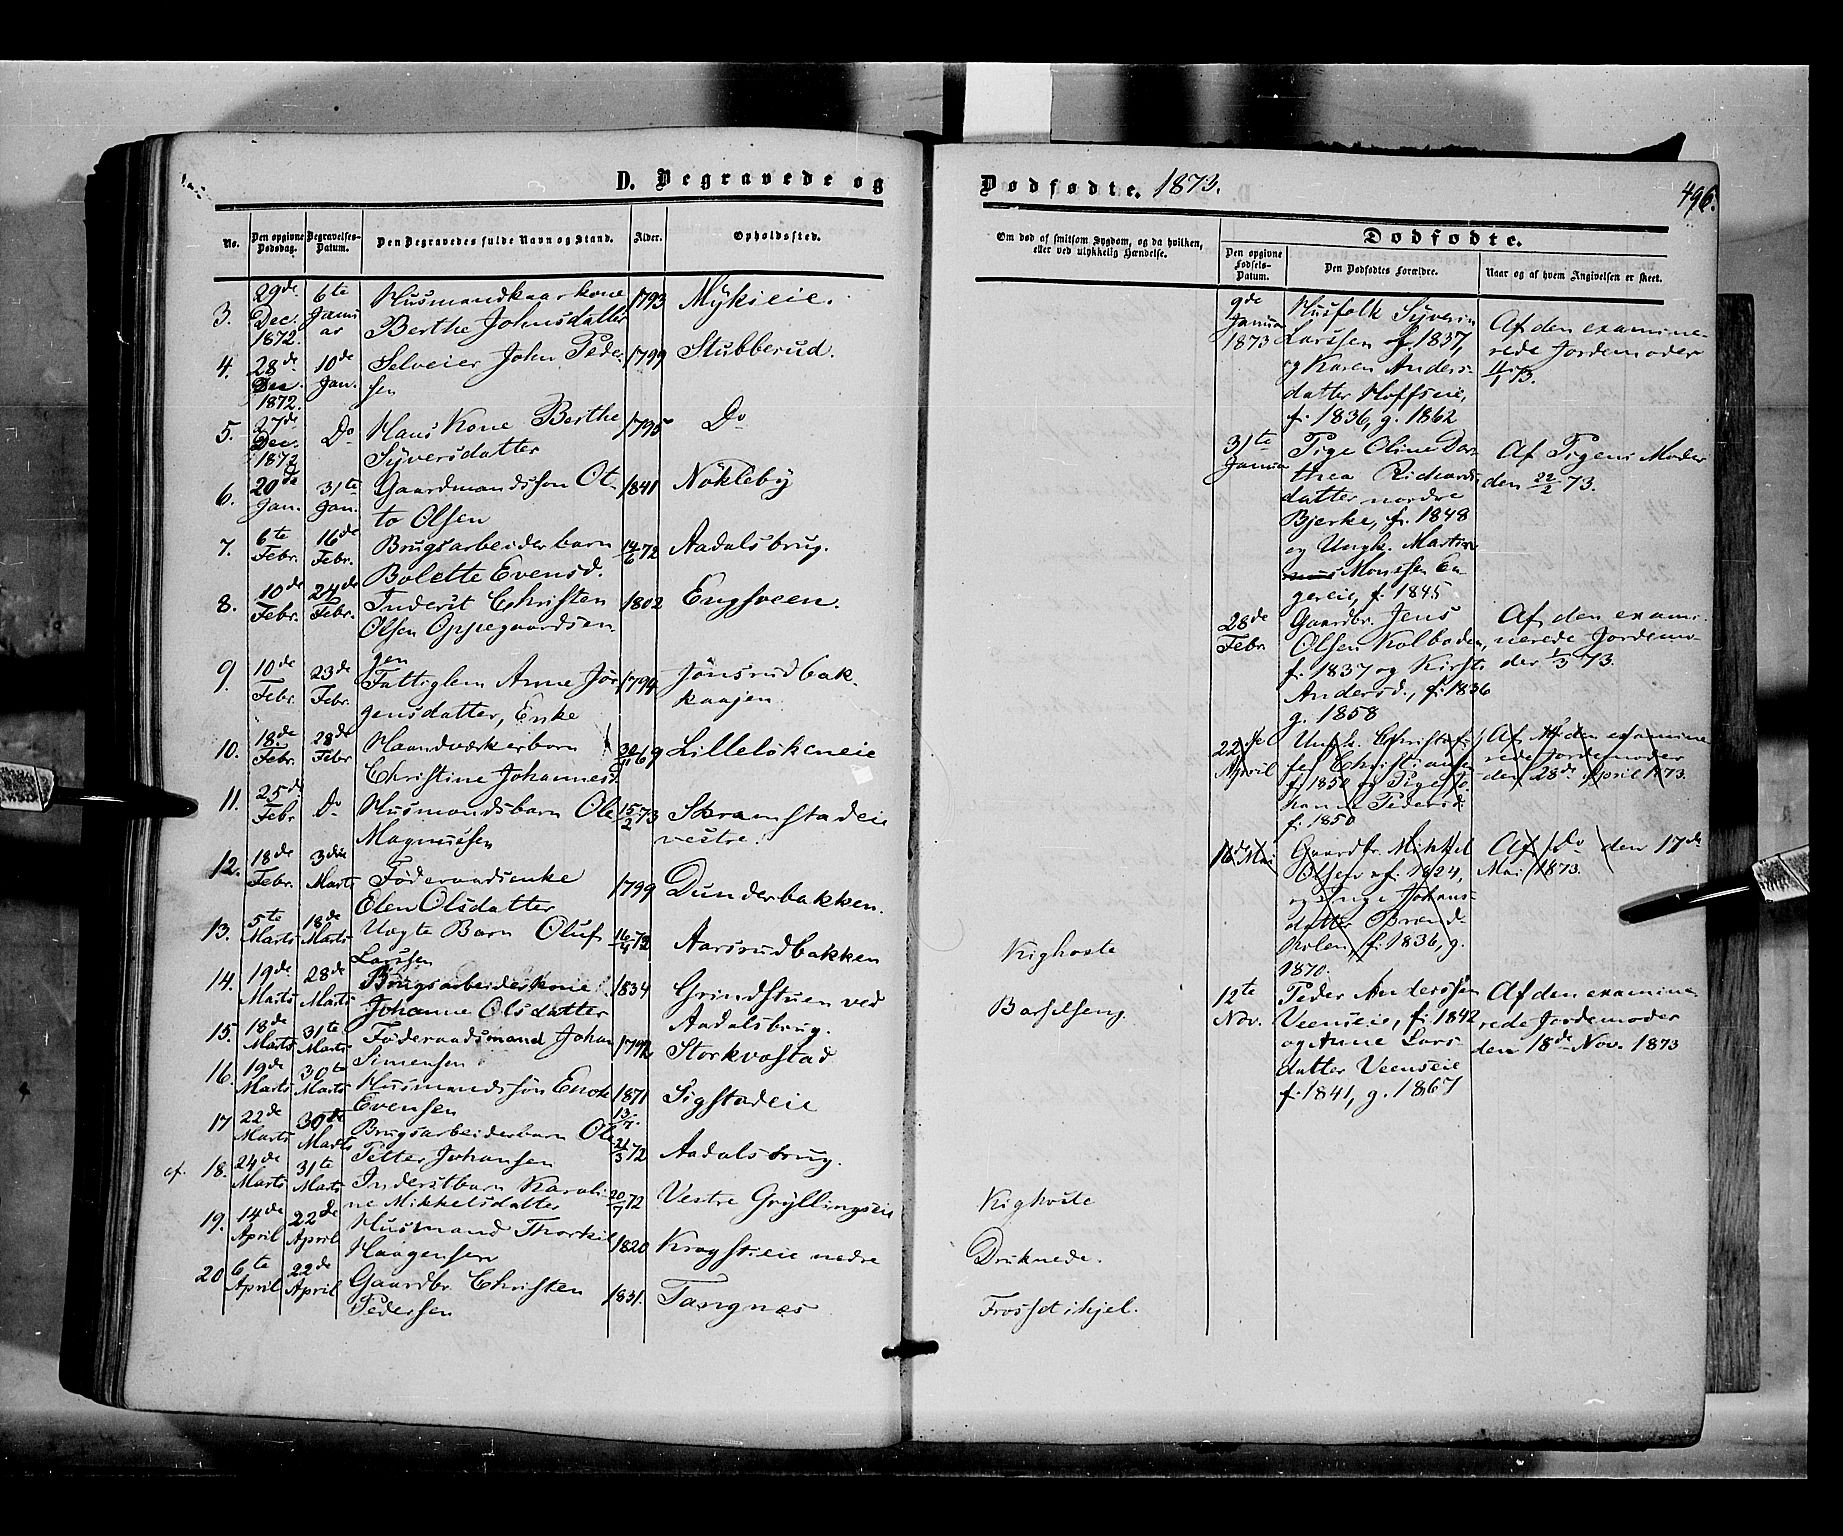 D. Begravede og
Dødfødte. 1873.
496.
No.
Den opgivne Dødsdag.
Begravelses-Datum.
Den Begravedes fulde Navn og Stand.
Alder.
Opholdssted.
Om død af smitsom Sygdom, og da hvilken,
eller ved ulykkelig Hændelse.
Dødfødte.
Den opgivne Fødsels-Datum.
Den Dødfødtes Forældre.
Naar og af hvem Angivelsen er skeet.
3. 29de Dec. 1872. 6te Januar Husmandkaarkone 1793 Mykieie.
Berthe Johnsdatter
4. 28de Dec. 1872. 10de Jan. Selveier John Peder- 1799 Stubberud.
sen
5. 27de Dec. 1872 Do Hans Kone Berthe 1795 Do
Syversdatter
6. 20de Jan. 31te Jan. Gaardmandssøn Ot- 1841 Nökleby
to Olsen
7. 6te Febr. 16de Febr. Brugsarbeiderbarn 14/6 72 Aadalsbrug.
Bolette Evensd.
8. 10de Febr. 24de Febr. Inderst Christen 1802 Engsveen.
Olsen Oppegaardsen-
gen
9. 10de Febr. 23de Febr. Fattiglem Anne Jör- 1794 Jönsrudbak-
gensdatter, Enke kaajen
10. 18de Febr. 28de Febr Haandværkerbarn 69 Lillelökeneie
Christine Johannesd.
11. 25de Febr Do Husmandsbarn Ole 15/2 73 Skramstadeie
Magnussen vestre.
12. 18de Febr. 3die Marts Föderaadsenke 1799 Dunderbakken.
Elen Olsdatter
13. 5te Marts 18de Marts Uægte Barn Oluf 16/4 72 Aarsrudbakken Kighoste
Larssen
14. 19de Marts 28de Marts Brugsarbeiderkone 1834 Grindstuen ved Barselseng.
Johanne Olsdatter Aadalsbrug.
15. 18de Marts 31te Marts Föderaadsmand Johan 1792 Storkvastad
Simensen
16. 19de Marts 30te Marts Husmandssøn Enok 1871 13/7. Sigstadeie
Evensen
17 22de Marts 30te Marts Brugsarbeiderbarn Ole 21/3 72 Aadalsbrug.
Petter Johansen
cf. 18. 24de Marts 31te Marts Inderstbarn Karoli- 20/7 72 Vestre Gryllingseie Kighoste
ne Mikkelsdatter
19. 14de April 22de April Husmand Thorkil 1820 Kragstieie nedre Druknede.
Haagensen
20 6te April 22de April Gaardbr. Christen 1831. Tangnæs Frosset ihjel.
Pedersen
9de Januar 1873 Husfolk Syverin
Larssen f. 1837,
og Karen Anders-
datter Hoffseie,
f. 1836, g. 1862
Af den examine-
rede Jordemoder
11/1 73.
31te Januar Pige Oline Dor-
thea Richards-
datter nordre
Bjerke, f. 1848
og Ungk. Martin
Monssen En-
gereie, f. 1845
Af Pigens Moder
den 22/2 73.
28de Febr Gaardbr. Jens
Olsen Kolbaden,
f. 1837 og Kirsti
Andersd., f. 1836
g. 1858
Af den exami-
nerede Jordemo-
der 1/3 73.
22de April Ungk. Christof-
fer Christiansen
f. 1850 og Pige Jo-
hanne Pedersd.
f. 1850
Af den examine-
rede Jordemoder
den 28de April 1873.
16de Mai Gaardbr. Mikkel
Olsen f. 1824,
og Inge Johans-
datter Brænd-
kolen, f. 1836, g.
1870.
Af Do den 17de
Mai 1873.
12te Nov. Peder Anderssen
Veenseie, f. 1842
og Anne Lars-
datter Veenseie
f. 1841, g. 1867
Af den examine-
rede Jordemoder
den 18de Nov. 1873